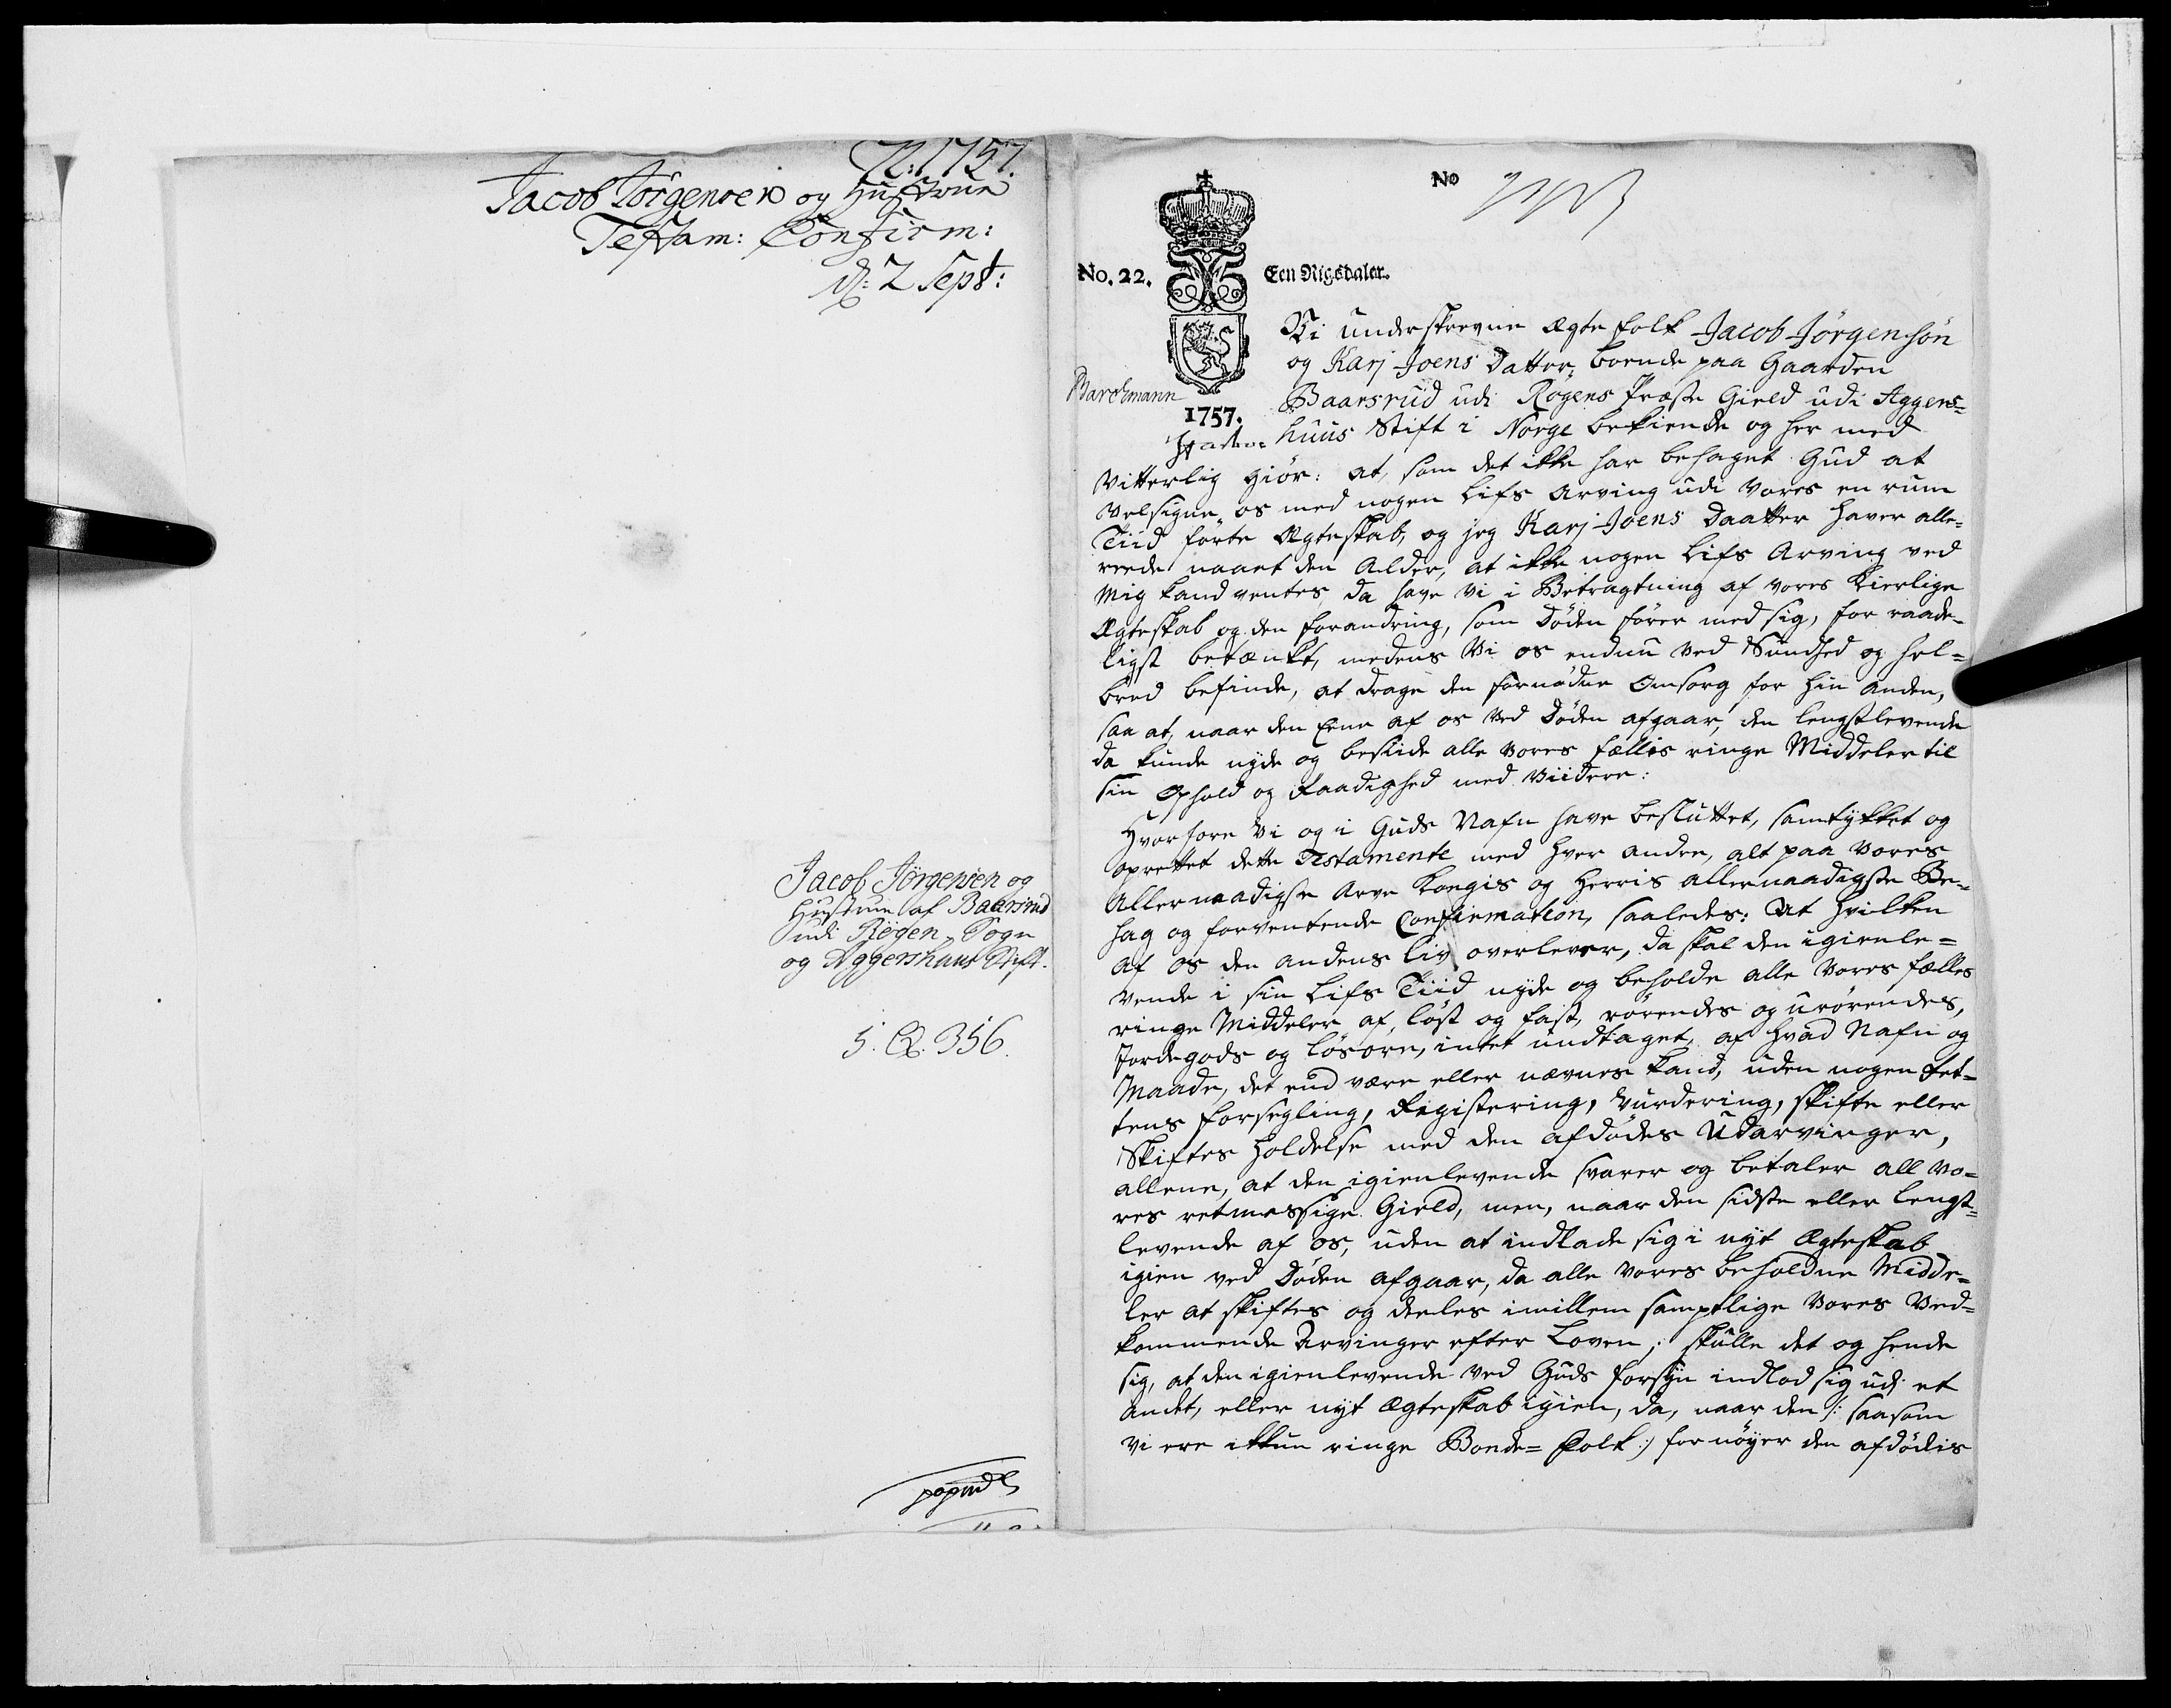 N: 1757.
Jacob Jörgensen og Hustrue
Testam: Confirm:
d: 2 Sept:
Jacob Jørgensen og
Hustrue af Baarsrud
udi Røgen Sogn
og Aggershuus Stift.
5. C. 356.
No
No. 22.
Een Rigsdaler.
Barchmann
1757.
Vi underskrevne Ægte folk Jacob Jörgensön
og Karj Joens Datter, boende paa Gaarden
Baarsrud udi Røgens Præste Gield udi Aggers=
huus Stift i Norge bekiende og her med
vitterlig giør: at, som det ikke har behaget Gud at
velsigne os med nogen Lifs Arving udi vores en rum
Tiid førte Ægteskab, og jeg Karj Joens Daatter haver alle=
reede naaet den Alder, at ikke nogen Lifs Arving ved
mig kand ventes, da have vi i Betragtning af vores kierlige
Ægteskab og den forandring, som Døden fører med sig, for raade=
ligst betænkt, medens Vi os endnu ved Sundhed og hel=
bred befinde, at drage den fornødne Omsorg for hin anden,
saa at, naar den Eene af os ved Døden afgaar, den lengstlevende
da kunde nyde og beside alle vores fælles ringe Middeler til
sin Ophold og Raadighed med viidere:
Hvorfore Vi og i Guds Nafn have besluttet, samtykket og
oprettet dette Testamente med hver andre, alt paa vores
Allernaadigste Arve Kongis og Herris allernaadigste Be=
hag og forventende Confirmation, saaledes: At hvilken
af os den andens liv overlever, da skal den igienle=
vende i sin Lifs Tiid nyde og beholde alle vores fælles
ringe Middeler af løst og fast, rørendes og urørendes,
Jordegods og løsøre, intet undtaget, af hvad Nafn og
Maade, det end være eller nævnes kand, uden nogen Ret=
tens forsegling, Registering, Vurdering, skifte eller
Skiftes holdelse med den afdødes Udarvinger,
allene, at den igienlevende svarer og betaler all vo=
res retmessige Gield, men, naar den sidste eller lengst=
levende af os, uden at indlade sig i nyt Ægteskab
igien ved Døden afgaar, da alle vores beholdne Midde=
ler at skiftes og deeles imellem samptlige vores Ved=
kommende Arvinger efter Loven; skulle det og hende
sig, at den igienlevende ved Guds forsyn indlod sig udi et
andet, eller nyt Ægteskab igien, da, naar den /: saasom
vi ere ikkun ringe Bonde= Folk :/ fornøyer den afdødis